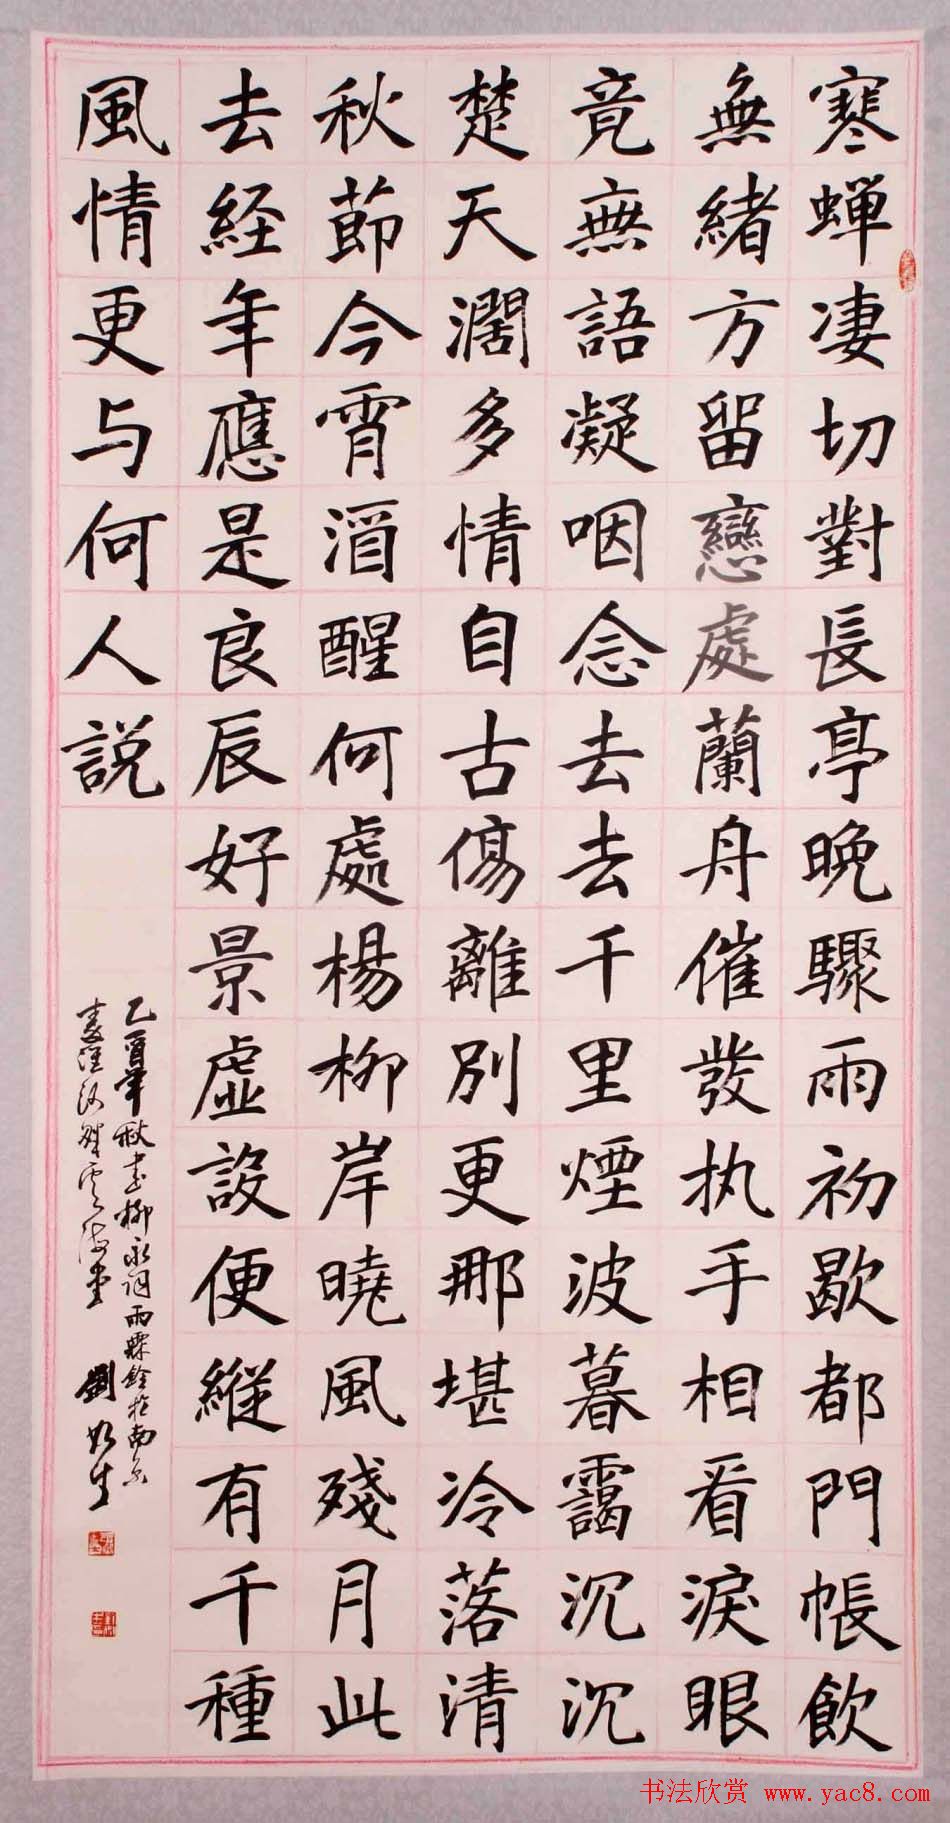 寒蝉凄切對長亭晚驟雨初歇都門帳飲
無緒方留戀處蘭舟催發执手相看淚眼
竟無語凝咽念去去千里煙波暮靄沉沉
楚天濶多情自古傷離別更那堪冷落清
秋節今宵酒醒何處楊柳岸曉風殘月此
去経年應是良辰好景虚設便縱有千種
風情更与何人説
乙酉年秋書柳永詞雨霖鈴於南京
秦淮河畔 劉 生
书法欣赏 www.yac8.com